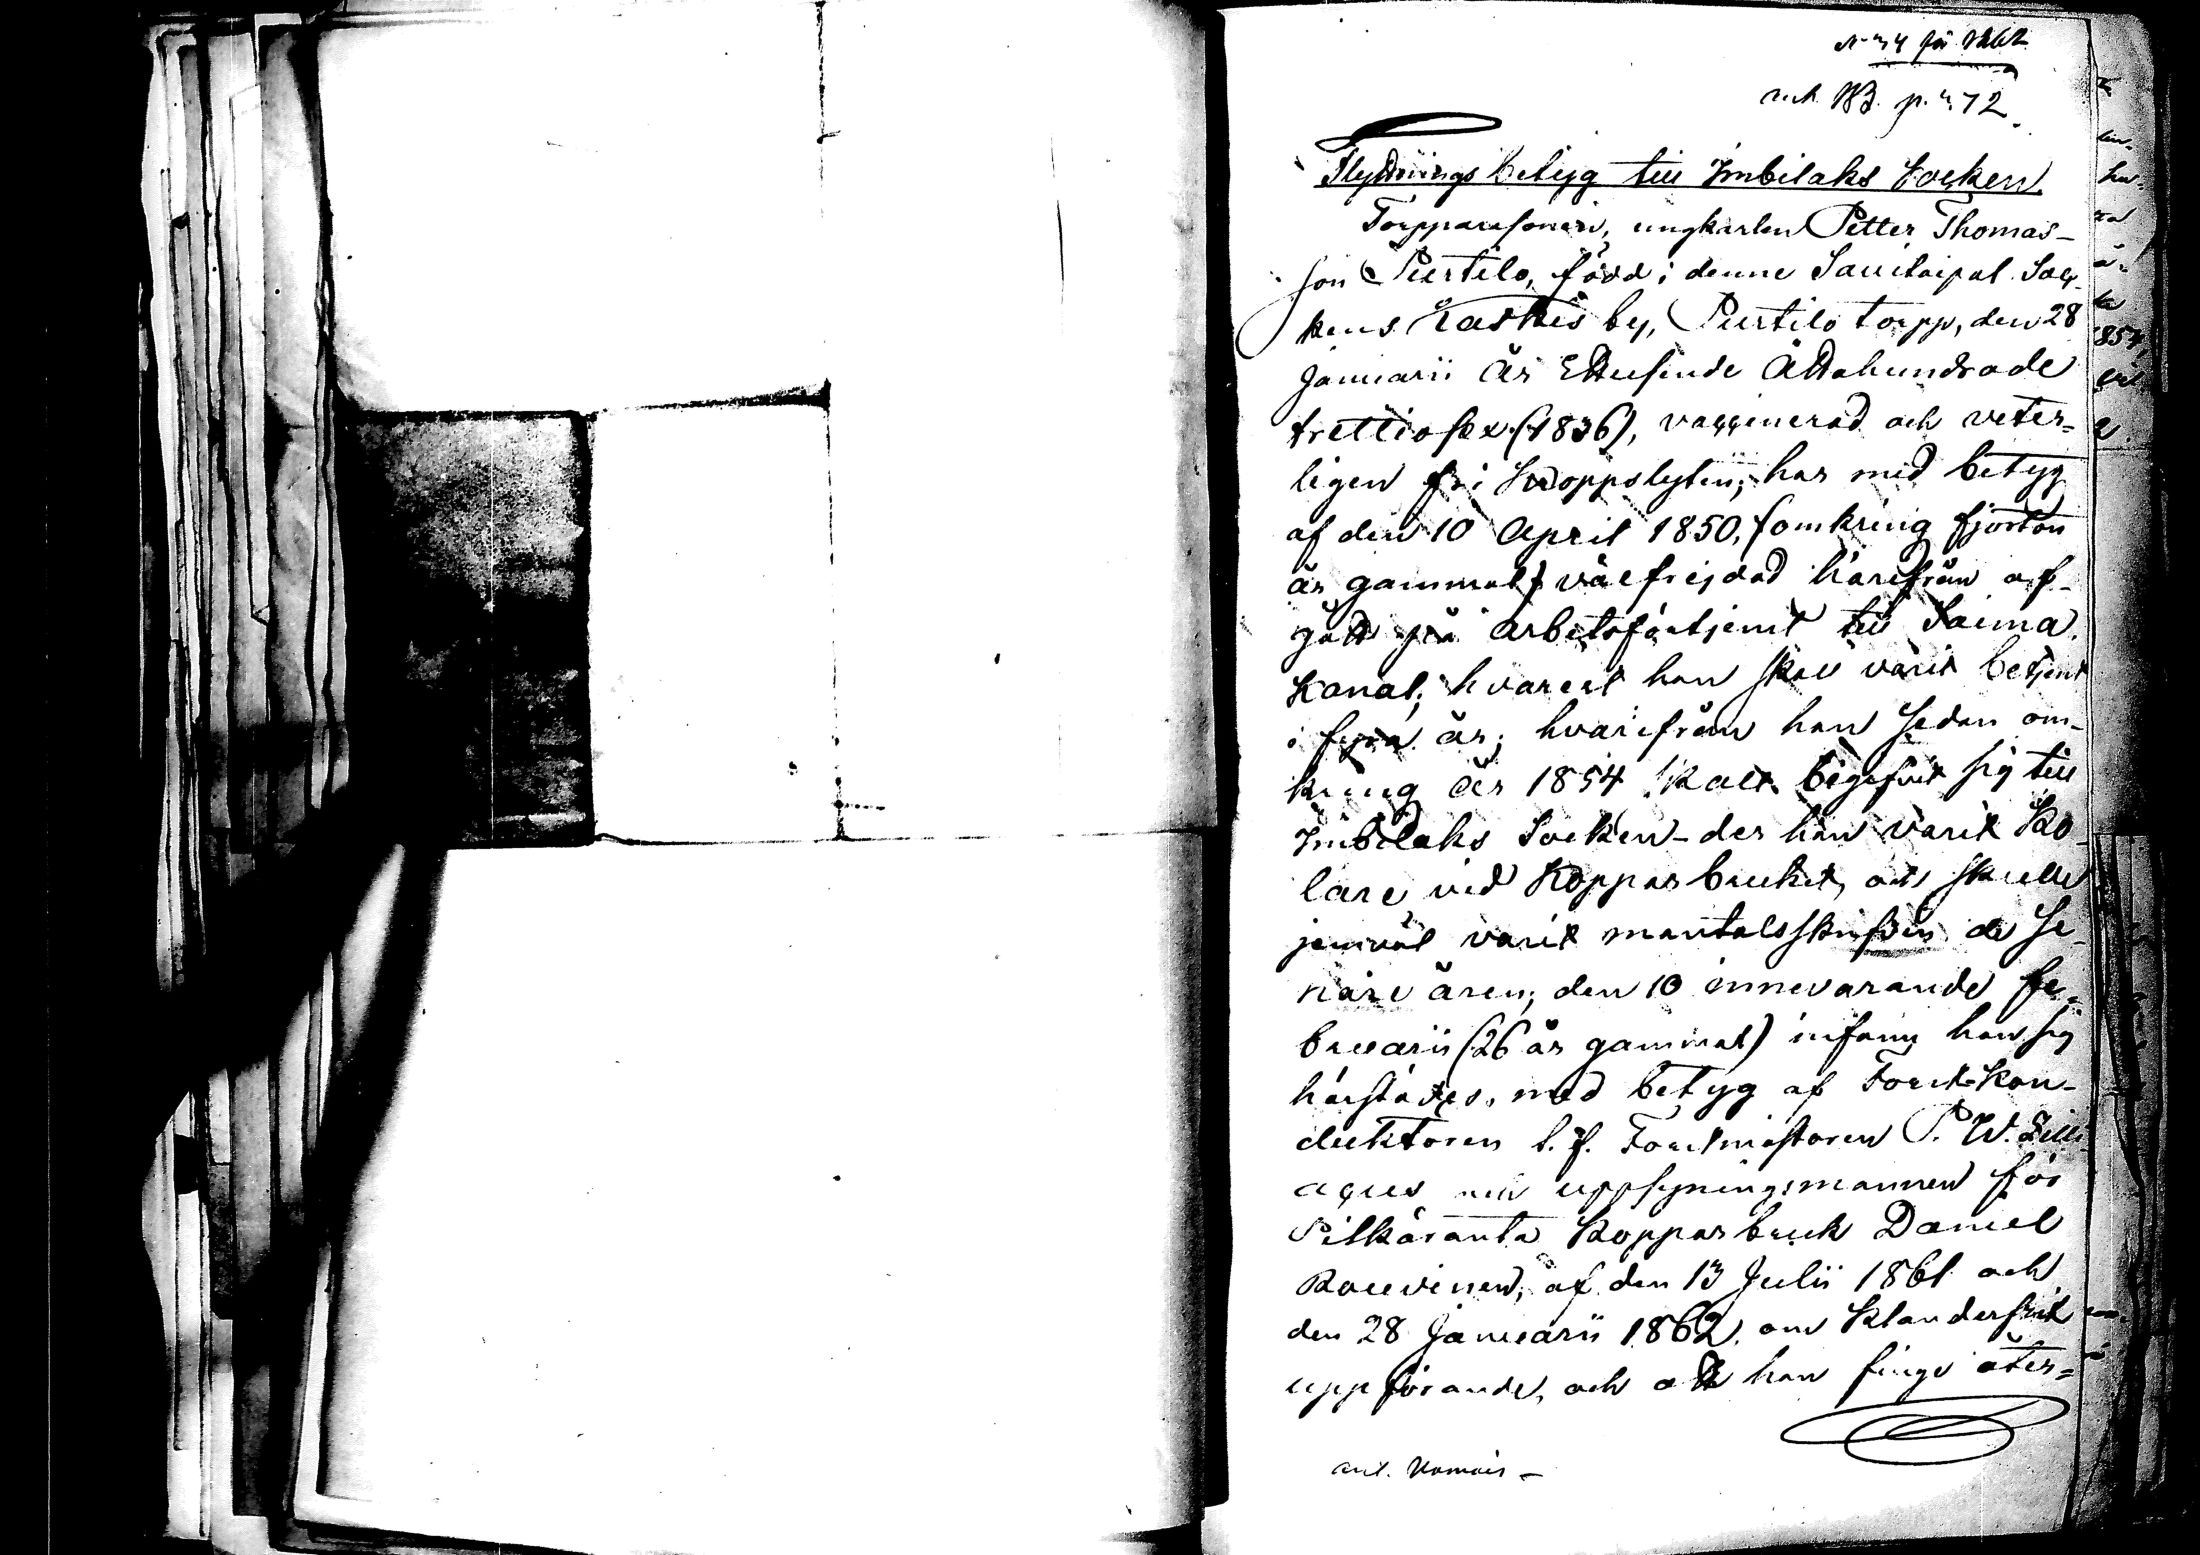 N:o 34 för 1862
ank. KB. p. 72.
Flyttnings betyg till Imbilaks Socken.
Torpparesonen, ungkarlen Petter Thomas-
son Purtilo, född i denne Savitaipal Soc-
kens Kaskis by, Purtilo torpp, den 28
Januarii år Ettusende Åttahundrade
trettiosex (1836), vaccinerad och veter-
ligen fri kroppslyten, har med betyg
af den 10 April 1850, (omkring fjorton
år gammal) välfrejdad härifrån af-
gått på arbetsförtjenst till Saima
Kanal; hvarest han skall varit betjent
i fyra år; hvarifrån han sedan om-
kring år 1854 skall begifvit sig till
Imbilaks Socken - der han varit Ko-
lare vid Kopparbruket, och skulle
jemväl varit mantalsskrifven de se-
nare åren; den 10 innevarande Fe-
bruarii (26 år gammal) infann han sig
härstädes, med betyg af Forst-Kon-
duktoren t. f. Forstmästaren P. W.
och uppsyningsmannen för
Pitkäranta Kopparbruk Daniel
Rouvinen, af den 13 Julii 1861 och
den 28 Januarii 1862, om klanderfritt
uppförande, och att han finge åter-
1854,